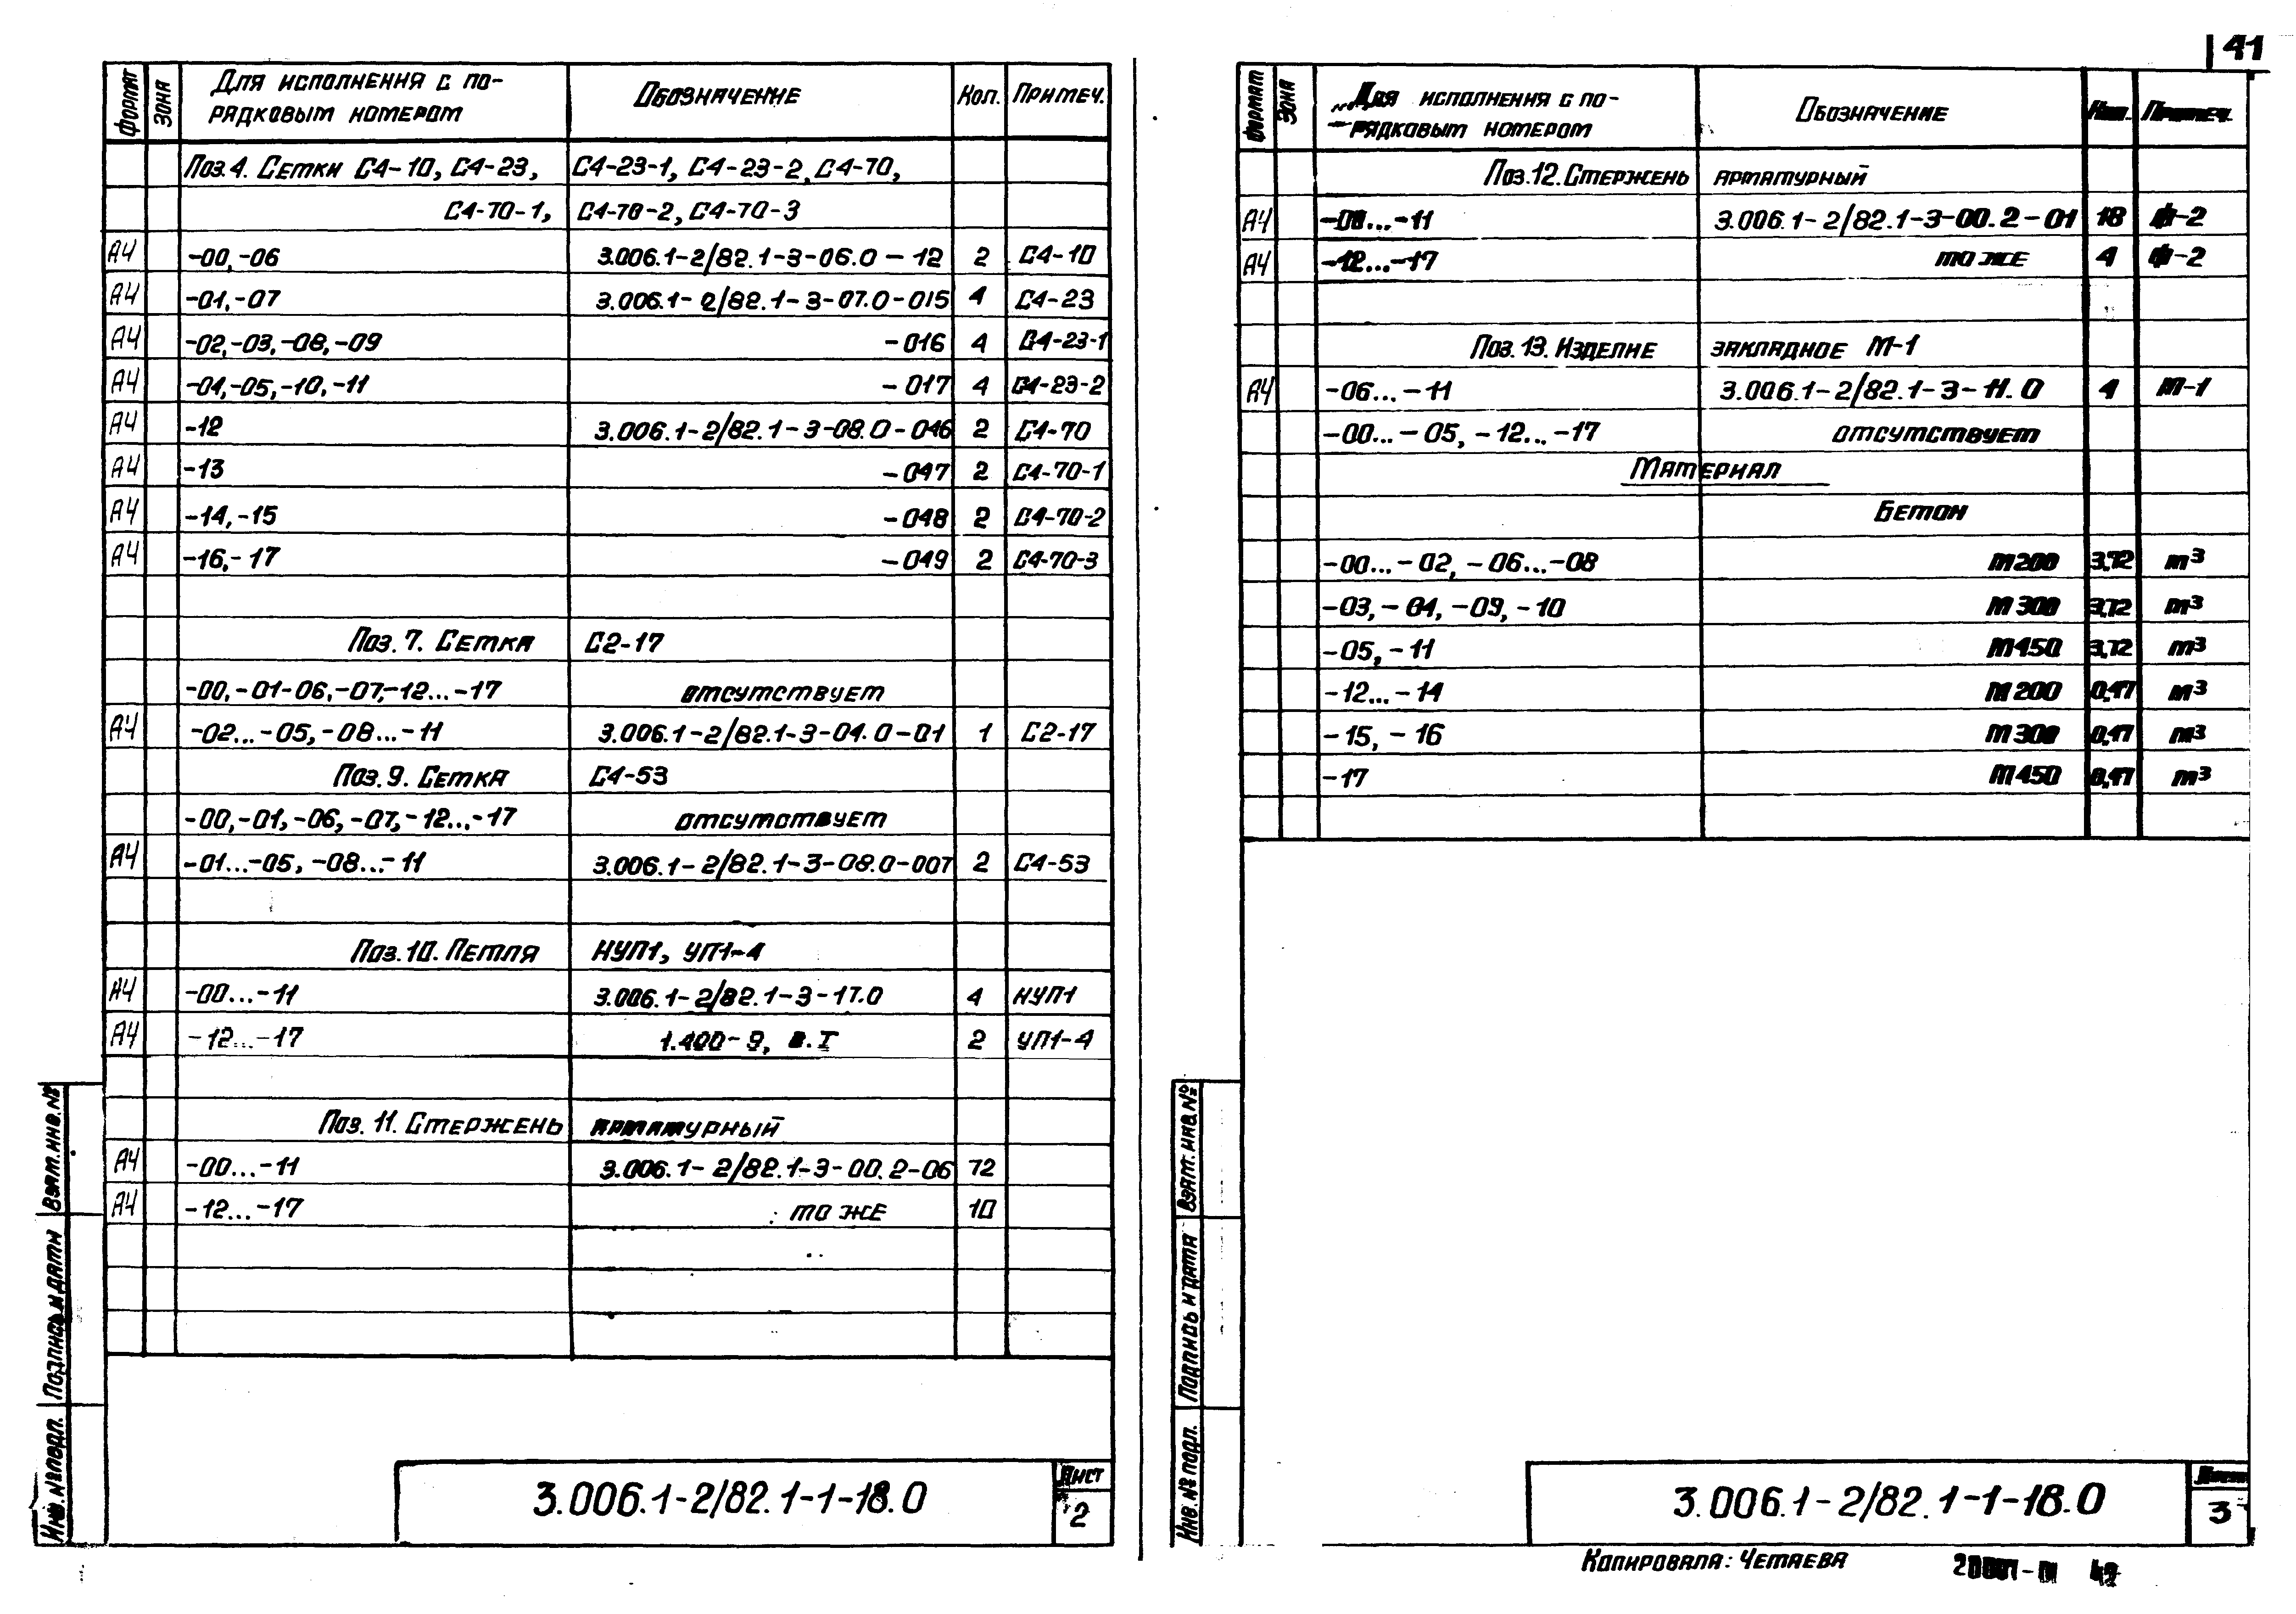 41
Формат Зона Для исполнения с по- Обозначение Кол. Примеч.
рядковым номером
Поз. 4. Сетки С4-10, С4-23, С4-23-1, С4-23-2, С4-70,
С4-70-1, С4-70-2, С4-70-3
А4 -00,-06 3.006.1-2/82.1-3-06.0-12 2 С4-10
А4 -01,-07 3.006.1-2/82.1-3-07.0-015 4 С4-23
А4 -02,-03,-08,-09 -016 4 С4-23-1
А4 -04,-05,-10,-11 -017 4 С4-23-2
А4 -12 3.006.1-2/82.1-3-08.0-046 2 С4-70
А4 -13 -047 2 С4-70-1
А4 -14,-15 -048 2 С4-70-2
А4 -16,-17 -049 2 С4-70-3
Поз. 7. Сетка С2-17
-00,-01-06,-07,-12...-17 отсутствует
А4 -02...-05,-08...-11 3.006.1-2/82.1-3-04.0-01 1 С2-17
Поз. 9. Сетка С4-53
-00,-01,-06,-07,-12...-17 отсутствует
А4 -01...-05, -08...-11 3.006.1-2/82.1-3-08.0-007 2 С4-53
Поз. 10. Петля НУП1, УП1-4
А4 -00...-11 3.006.1-2/82.1-3-17.0 4 НУП1
А4 -12...-17 1.400-9, в.I 2 УП1-4
Поз. 11. Стержень арматурный
А4 -00...-11 3.006.1-2/82.1-3-00.2-06 72
А4 -12...-17 то же 10
Инв.№ подл. Подпись и дата Взят.инв.№
3.006.1-2/82.1-1-18.0
Лист
2
Формат Зона Для исполнения с по- Обозначение Кол. Примеч.
рядковым номером
Поз. 12. Стержень арматурный
А4 -00...-11 3.006.1-2/82.1-3-00.2-01 18 Ф-2
А4 -12...-17 то же 4 Ф-2
Поз. 13. Изделие закладное М-1
А4 -06...-11 3.006.1-2/82.1-3-11.0 4 М-1
-00...-05, -12...-17 отсутствует
Материал
Бетон
-00...-02, -06...-08 М200 3,72 м³
-03,-04,-09,-10 М300 3,72 м³
-05,-11 М450 3,72 м³
-12...-14 М200 0,47 м³
-15, -16 М300 0,47 м³
-17 М450 0,47 м³
Инв.№ подл. Подпись и дата Взят.инв.№
3.006.1-2/82.1-1-18.0
Лист
3
Копировала: Четаева